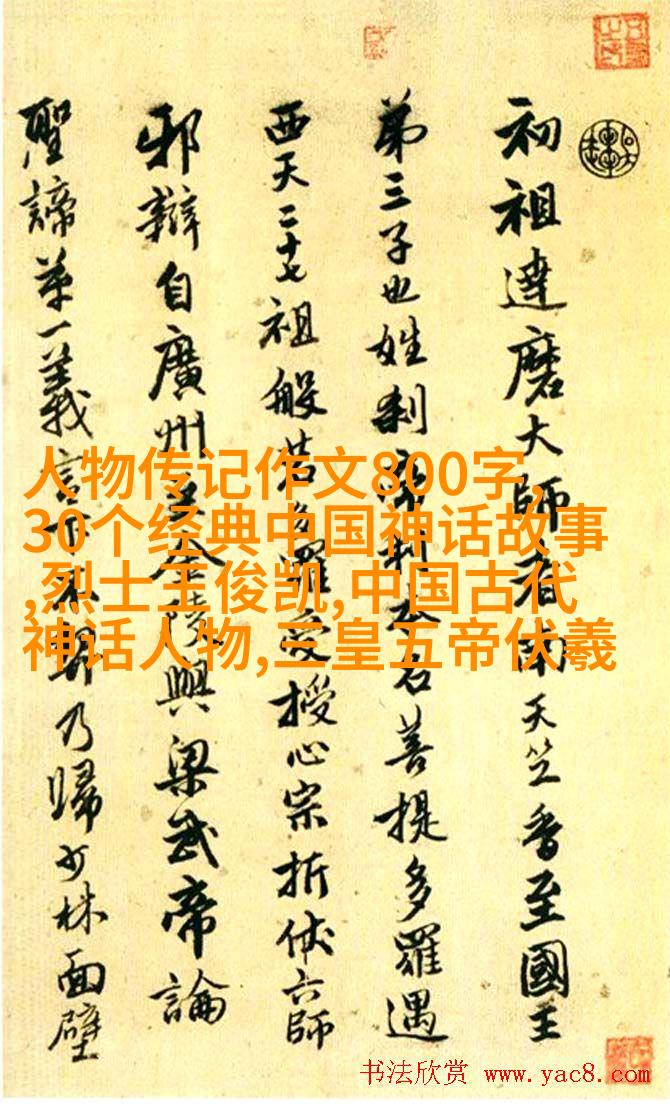 初祖達磨大師者南天竺香至國王
弟三子也姓刹帝利本名菩提多羅遇
西天二十七祖般若多羅受授心宗折伏六師
邪辯自廣州至金陵與梁武帝論
聖諦第一義言下不契乃歸少林面壁
人物传记作文800字,
30个经典中国神话故事
,烈士王俊凯,中国古代
神话人物,三皇五帝伏羲
书法欣赏 www.yac8.com